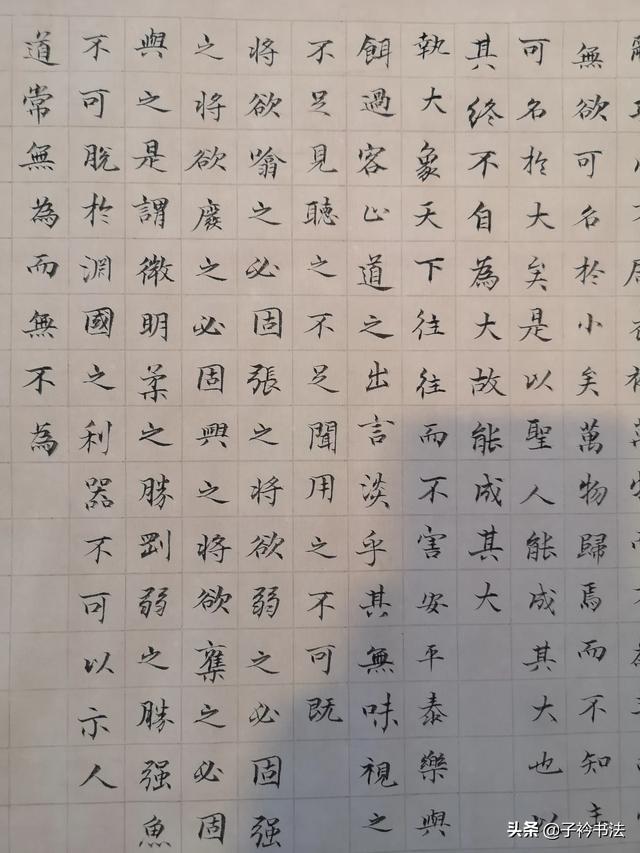 無欲可名於小矣萬物歸焉而不知主
可名於大矣是以聖人能成其大也以
其終不自為大故能成其大
執大象天下往往而不害安平泰樂與
餌過客止道之出言淡乎其無味視之
不足見聽之不足聞用之不可既
將欲噏之必固張之將欲弱之必固强
之將欲廢之必固興之將欲奪之必固
與之是謂微明柔之勝剛弱之勝强魚
不可脫於淵國之利器不可以示人
道常無為而無不為
头条 @子衿书法